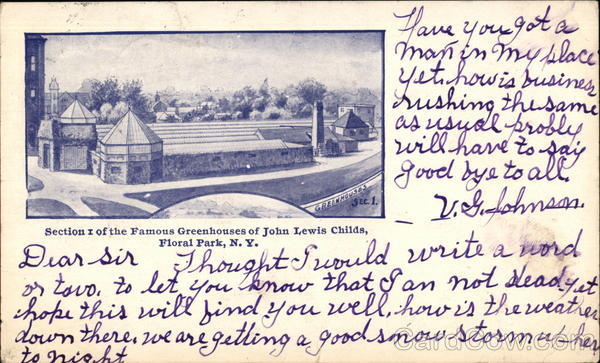 GREENHOUSES
Sec 1.
Section 1 of the Famous Greenhouses of John Lewis Childs,
Floral Park, N. Y.
Dear Sir Thought I would write a word
or two. to let you know that I an not dead, yet
hope this will find you well, how is the weather
down there. we are getting a good snow storm up her
to night
Have you got a
man in my place
yet. how is business
rushing the same
as usual probly
will have to say
good bye to all.
V. G. Johnson.
CardCow.com